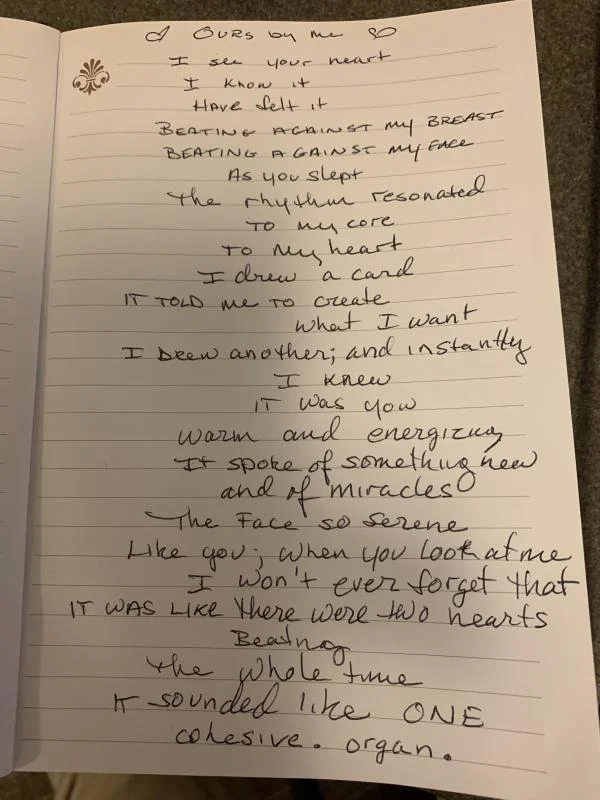 Ours by me
I see your heart
I know it
Have felt it
BEATING AGAINST my BREAST
BEATING AGAINST my FACE
As you slept
The rhythm resonated
To my core
To my heart
I drew a card
IT TOLD me TO create
what I want
I Drew another; and instantly
I knew
IT was you
warm and energizing
It spoke of something new
and of miracles
The Face so serene
Like you; when you look at me
I won't ever forget that
IT WAS LIKE there were two hearts
Beating
the whole time
It sounded like ONE
cohesive. organ.